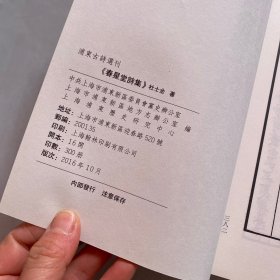 浦東古詩選刊
《春星堂詩集》杜士全 著
中共上海市浦東新區委員會黨史辦公室
上海市浦東新區地方志辦公室 編
上海浦東歷史研究中心
地址：上海市浦東新區迎春路520號
郵編：200135
印刷：上海翰林印刷有限公司
開本：16開
印數：300冊
版次：2016年10月
內部發行 注意保存
三八二